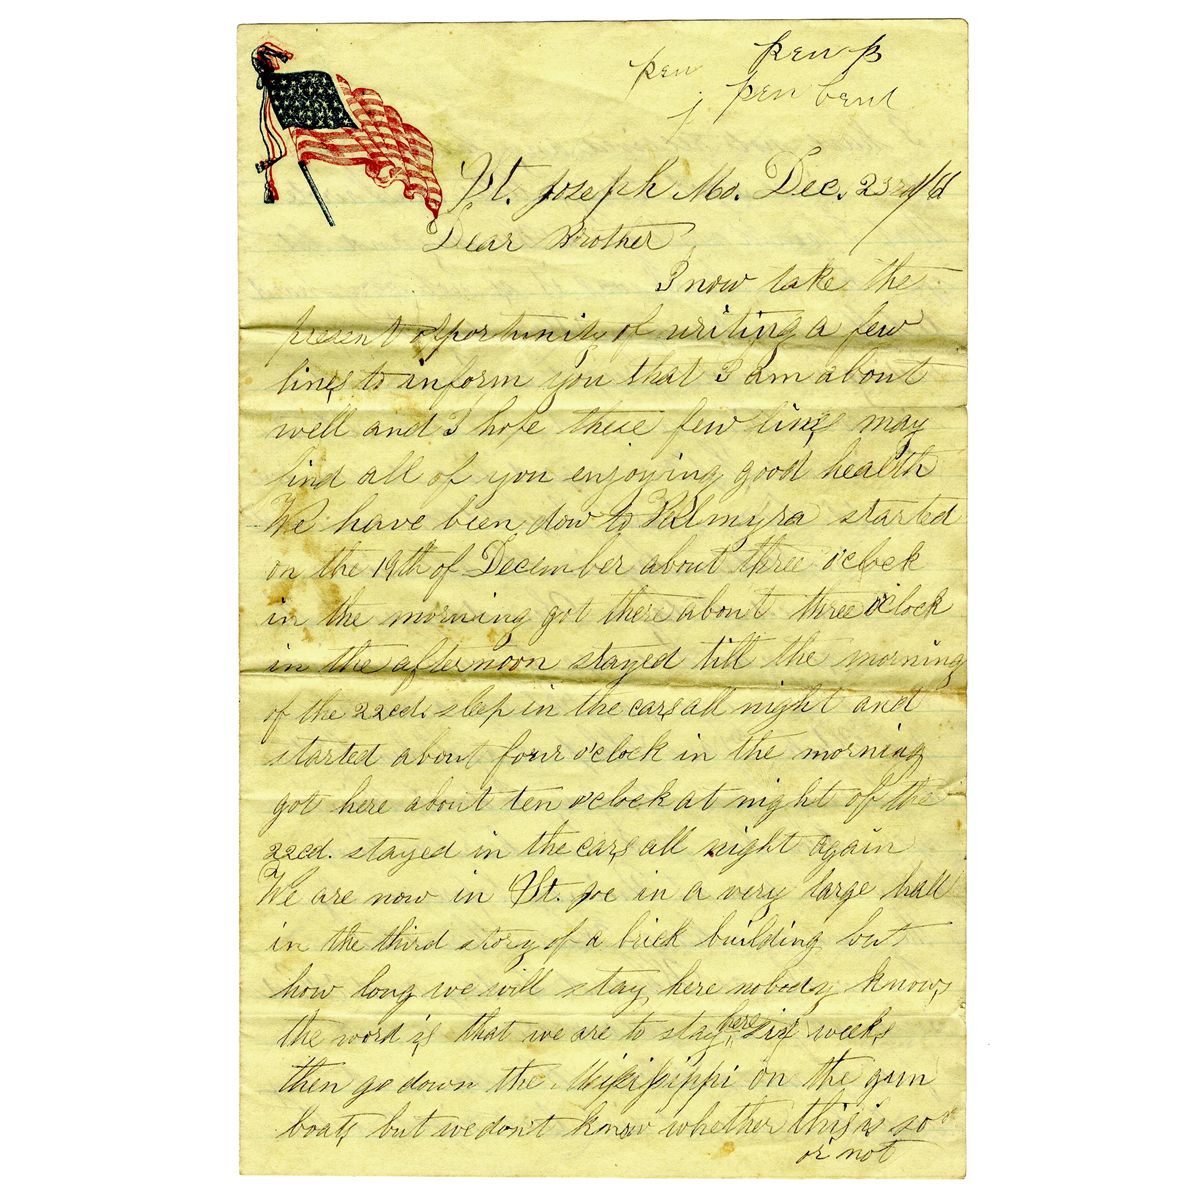 pen pen p
pen bent
St. Joseph Mo. Dec. 23rd/61
Dear Brother
I now take the
present opportunity of writing a few
lines to inform you that I am about
well and I hope these few lines may
find all of you enjoying good health
We have been dow to Palmyra started
on the 19th of December about three o'clock
in the morning got there about three o'clock
in the afternoon stayed till the morning
of the 22cd. slep in the cars all night and
started about four o'clock in the morning
got here about ten o'clock at night of the
22cd. stayed in the cars all night again
We are now in St. Joe in a very large hall
in the third story of a brick building but
how long we will stay here nobody knows
the word is that we are to stay here six weeks
then go down the Missisippi on the gun
boats but we don't know whether this is so
or not